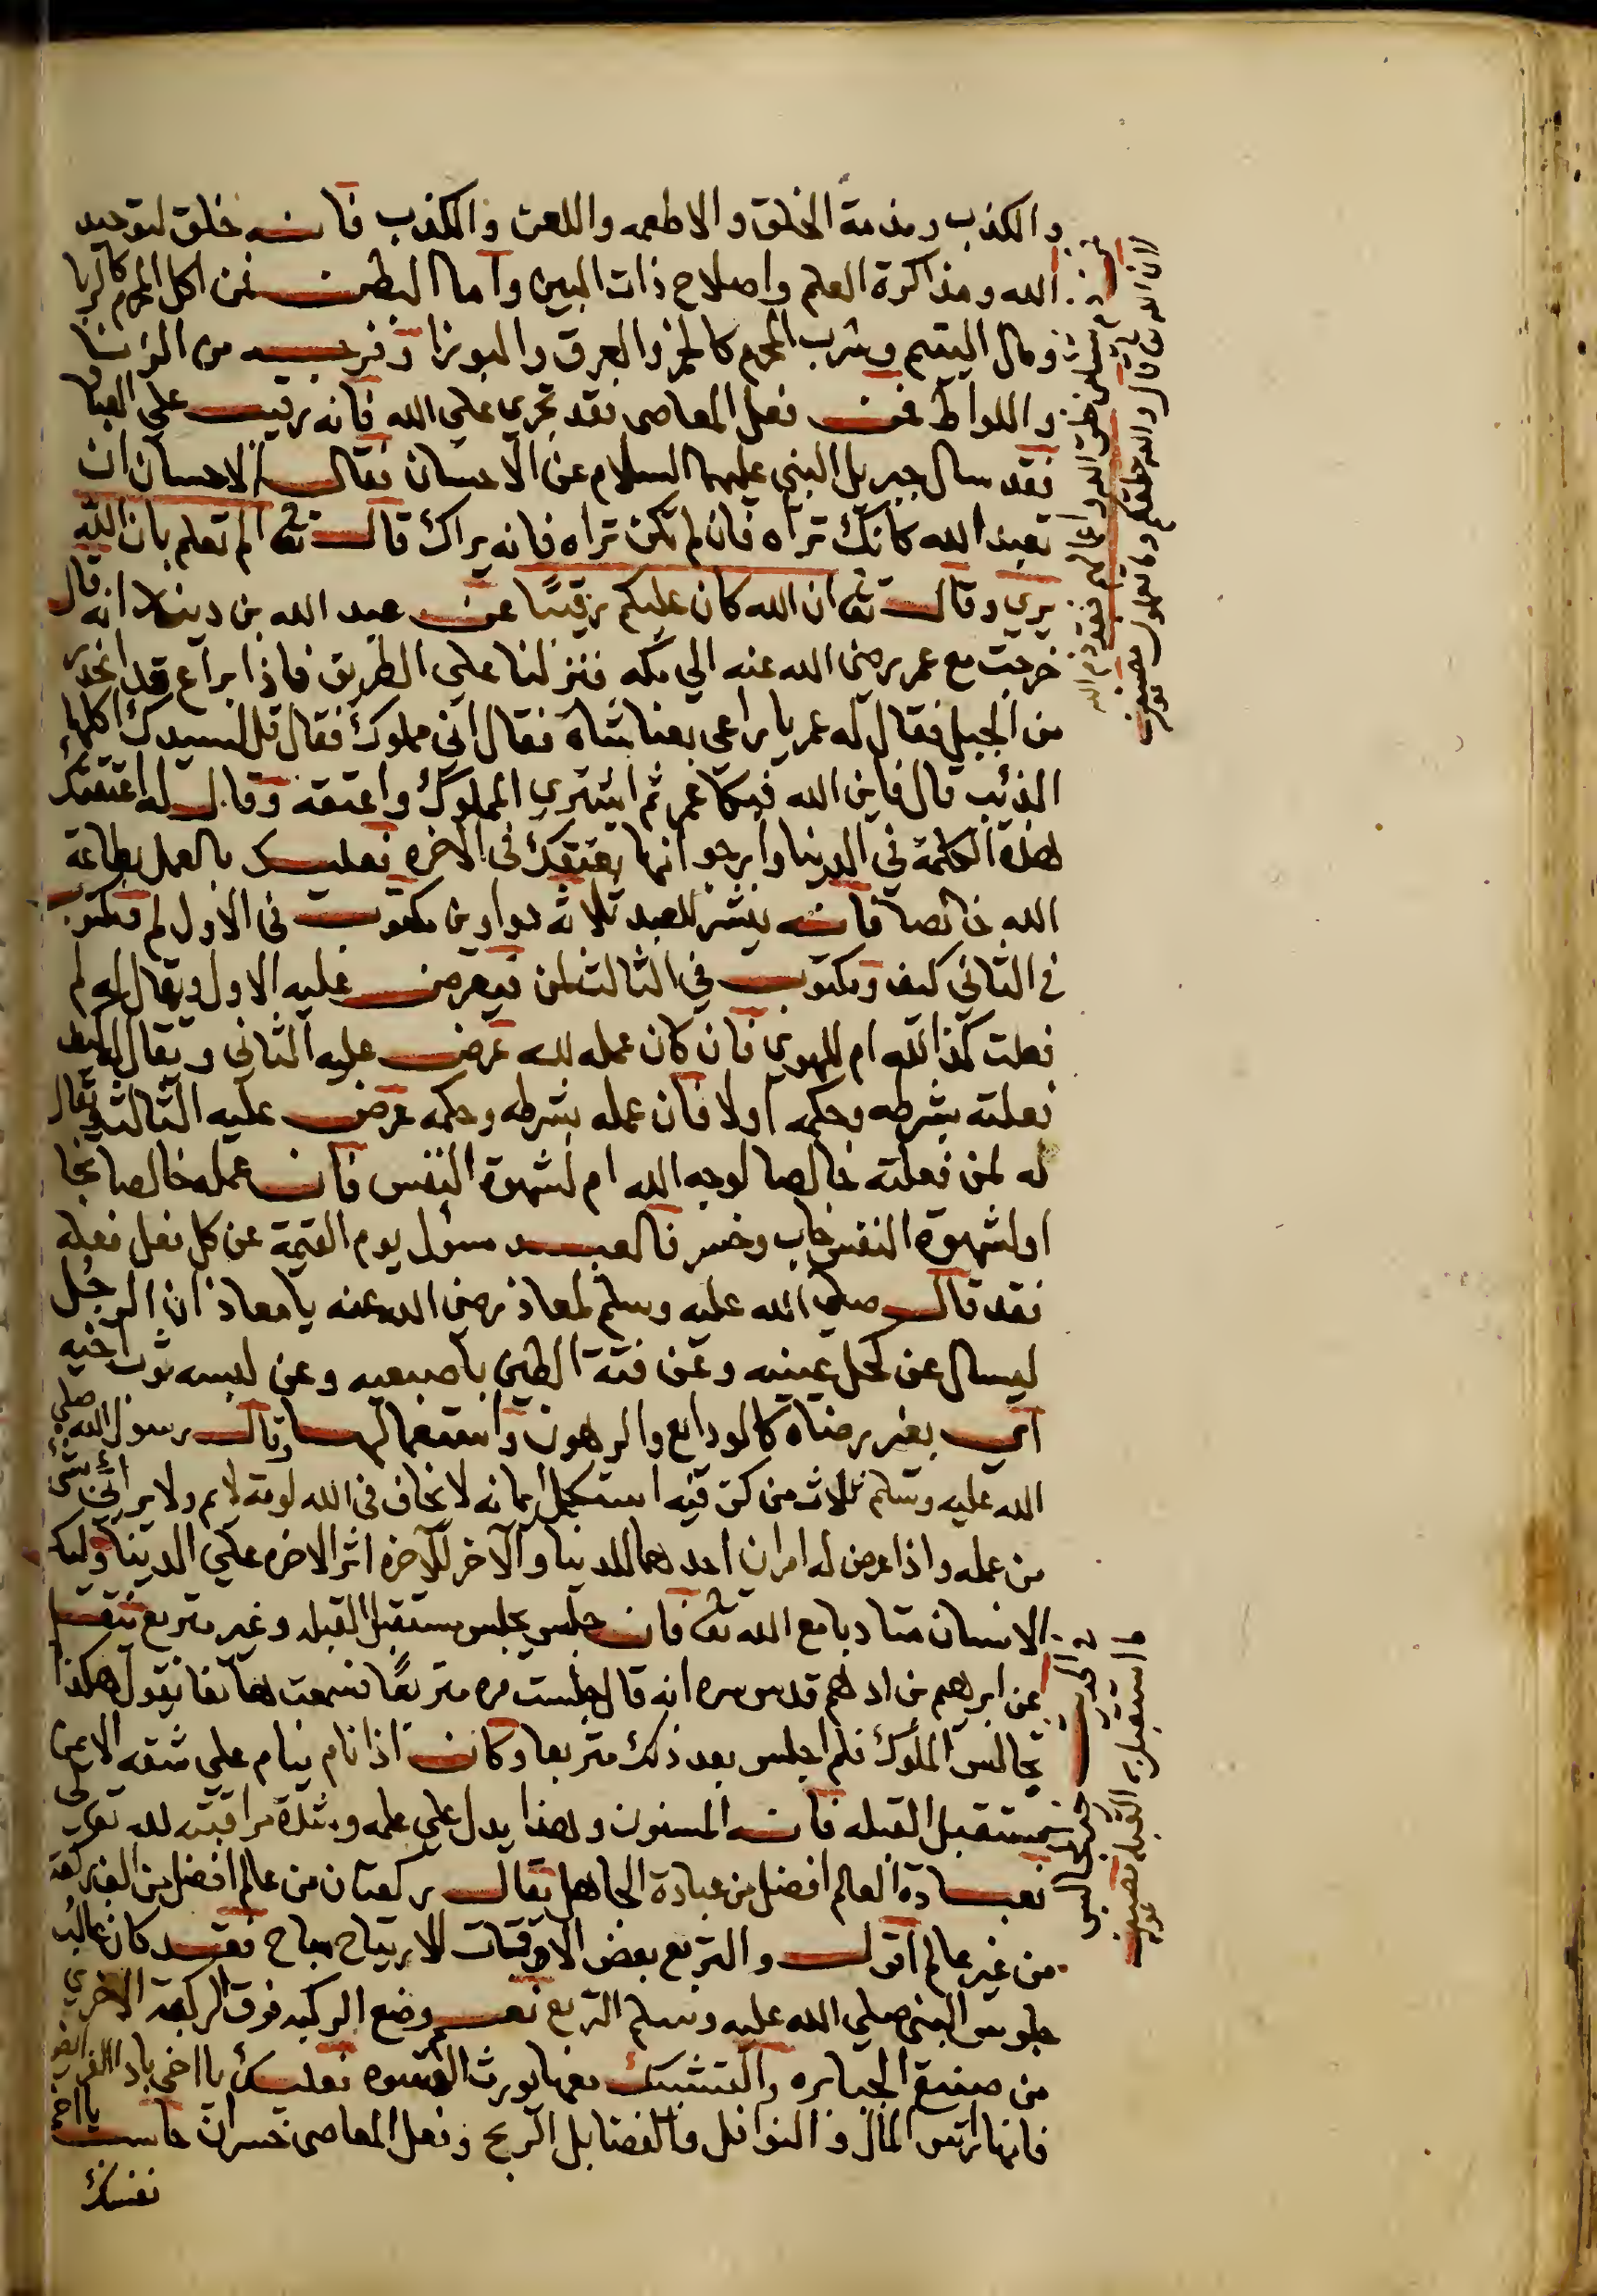 والكذب ومذمة الخلق والاطعمه واللعن والكذب فانه خلق لتوحيد
الله ومذاكرة العلم واصلاح ذات البين واما البطن فمن اكل المحرم كالربا
ومال اليتيم وشرب المحرم كالخمر والعرق والبوزا وفرجه من الزنا
واللواط فمن فعل المعاصي فقد تجري على الله فانه رقيب على العباد
فقد سال جبريل النبي عليهما السلام عن الاحسان فقال الاحسان ان
تعبد الله كانك تراه فان لم تكن تراه فانه يراك قال تعالى الم تعلم بان الله
يري وقال تعالى ان الله كان عليكم رقيبًا عن عبد الله بن دينار انه قال
خرجت مع عمر رضي الله عنه الي مكه فنزلنا علي الطريق فاذا براع قد انحدر
من الجبل فقال له عمر يا راعي بعنا شاة فقال اني مملوك فقال قل لسيدك اكلها
الذئب قال فاين الله فبكا عمر ثم اشتري المملوك واعتقه وقال له اعتقتك
هذه الكلمة في الدنيا وارجو انها تعتقك في الاخره فعليك بالعمل بطاعة
الله خالصا فانه ينشر للعبد ثلاثه دواوين مكتوب في الاول لم ومكتوب
في الثاني كيف ومكتوب في الثالث لمن فيعرض عليه الاول ويقال له لم
فعلت كذا لله ام للهوي فان كان عمله لله عرض عليه الثاني ويقال له كيف
فعلته بشرطه وحكمه اولا فان عمله بشرطه وحكمه عرض عليه الثالث ويقال
له لمن فعلته خالصا لوجه الله ام لشهوة النفس فان عمله خالصا نجا
او لشهوة النفس خاب وخسر فالعبد مسول يوم القيمة عن كل فعل فعله
فقد قال صلي الله عليه وسلم لمعاذ رضي الله عنه يا معاذ ان الرجل
ليسال عن كحل عينيه وعن فتة الطين باصبعيه وعن لبسه ثوب اخيه
اي بغير رضاه كالودايع والرهون واستعمالها وقال رسول الله صلي
الله عليه وسلم ثلاث من كن فيه استكمل ايمانه لا يخاف في الله لومة لايم ولا يراي بشئ
من عمله واذا عرض له امران احدهما للدنيا والآخر للآخره اثر الاخره علي الدنيا وليكن
الانسان متادبا مع الله تعالى فان جلس يجلس مستقبل القبله وغير متربع فنقل
عن ابرهيم بن ادهم قدس سره انه قال جلست مره متربعًا فسمعت هاتفا يقول هكذا
تجالس الملوك فلم اجلس بعد ذلك متربعا وكان اذا نام ينام علي شقه الايمن
مستقبل القبله فانه المسنون وهذا يدل علي علمه وشدة مراقبته لله تعالى
فعبادة العالم افضل من عبادة الجاهل يقال ركعتان من عالم افضل من الف ركعة
من غير عالم اقول والتربع بعض الاوقات للارتياح مباح فقد كان غالب
جلوس النبي صلي الله عليه وسلم التربع نعم وضع الركبه فوق الركبة الاخري
من صنيع الجبابره والتشبك معها يورث القسوه فعليك يا اخي باداء الفرايض
فانها راس المال والنوافل والفضايل الربح وفعل المعاصي خسران حاسب يا اخي
نفسك